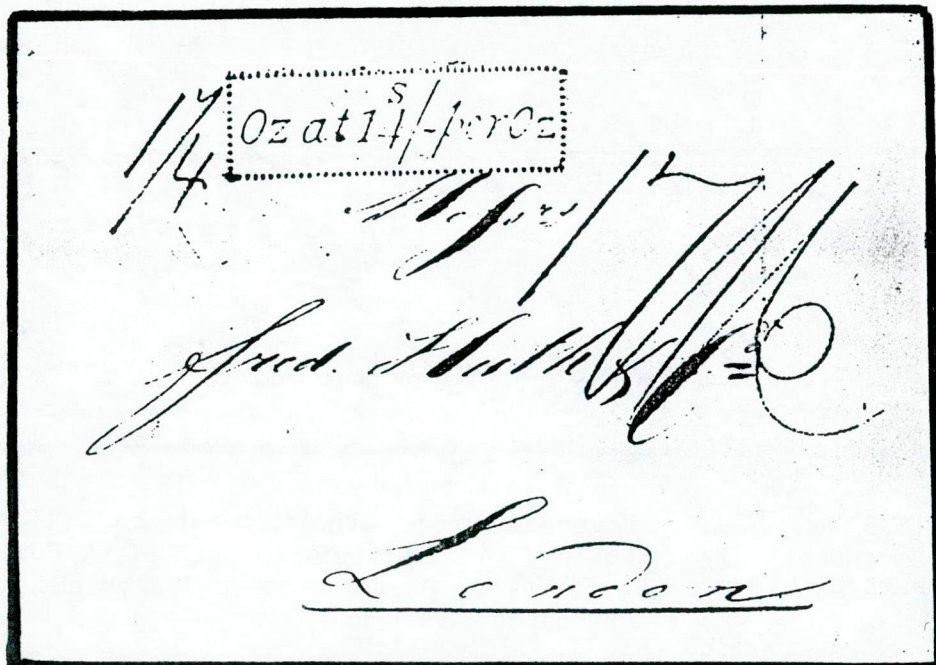 1¼ Oz at 14s/- per Oz
Messrs
Fred. Huth & Co
London